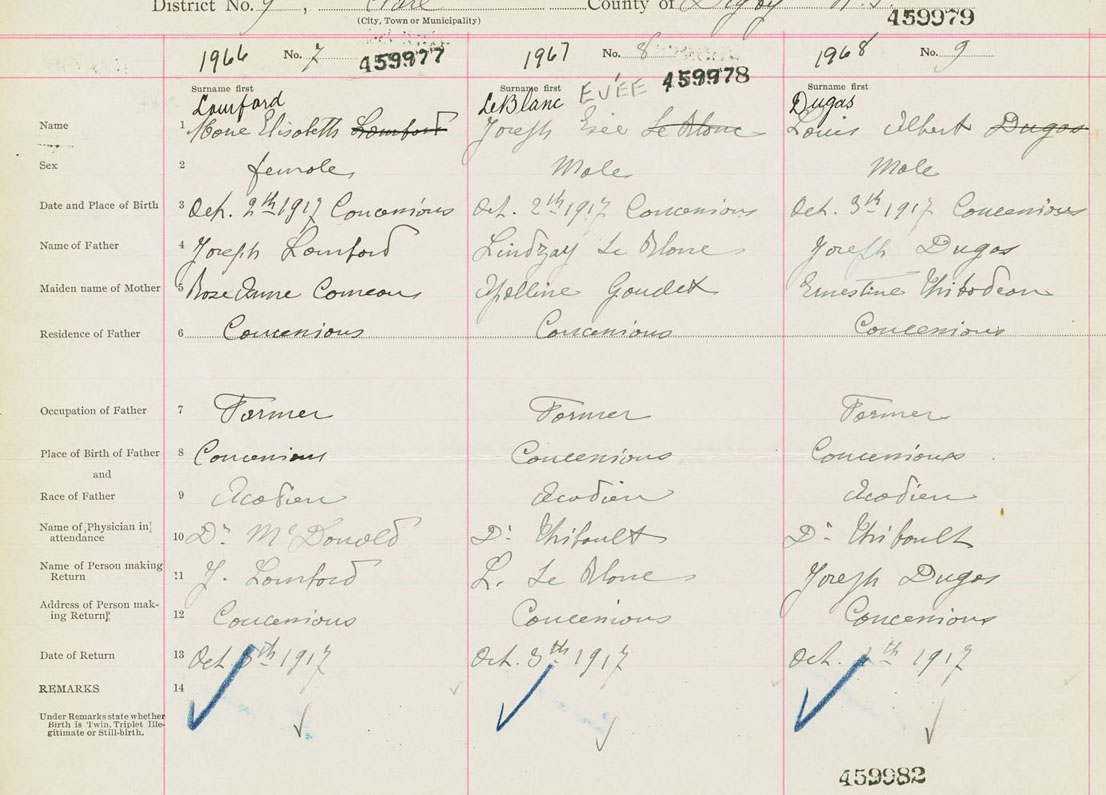 District No. 9, Clare County of Digby N.S.
(City, Town or Municipality)
459979
1966 No. 7 459977 1967 No. 8 459978 1968 No. 9
Surname first Surname first Surname first
Lomford LeBlanc EVÉE Dugas
Name 1 Marie Elisabeth Lomford Joseph Evée Le Blanc Louis Albert Dugas
Sex 2 female Male Male
Date and Place of Birth 3 Oct. 2th 1917 Concenious Oct. 2th 1917 Concenious Oct. 3th 1917 Concenious
Name of Father 4 Joseph Lomford Lindzay Le Blanc Joseph Dugas
Maiden name of Mother 5 Rose Anne Comeau Goudet Ernestine Thibodeau
Residence of Father 6 Concenious Concenious Concenious
Occupation of Father 7 Farmer Farmer Farmer
Place of Birth of Father 8 Concenious Concenious Concenious
and
Race of Father 9 Acadien Acadien Acadien
Name of Physician in attendance 10 Dr McDonald Dr Thibault Dr Thibault
Name of Person making Return 11 J. Lomford L. Le Blanc Joseph Dugas
Address of Person making Return 12 Concenious Concenious Concenious
Date of Return 13 Oct. th 1917 Oct. 3th 1917 Oct. th 1917
REMARKS 14
Under Remarks state whether
Birth is Twin, Triplet Ille-
gitimate or Still-birth.
459982